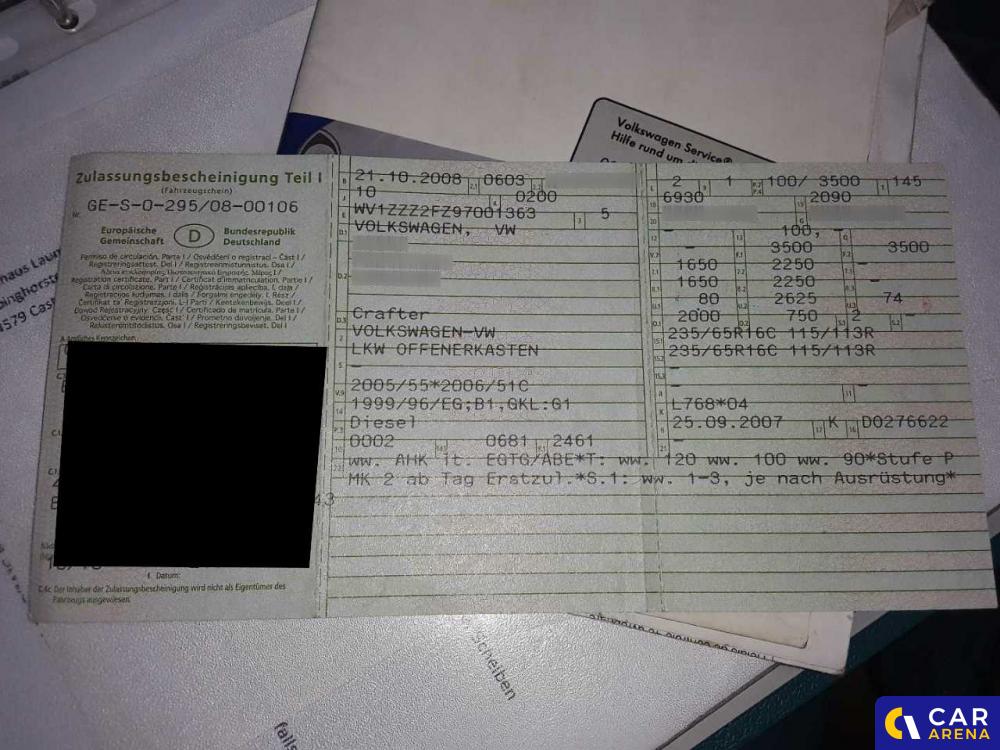 Volkswagen Service®
Hilfe rund um d
Zulassungsbescheinigung Teil I
(Fahrzeugschein)
Nr. GE-S-0-295/08-00106
Europäische Gemeinschaft
D
Bundesrepublik Deutschland
Permiso de circulación. Parte I / Osvědčení o registraci – Část I /
Registreringsattest. Del I / Registreerimistunnistus. Osa I /
Άδεια κυκλοφορίας. Μέρος I /
Registration certificate. Part I / Certificat d'immatriculation. Partie I /
Carta di circolazione. Parte I / Reģistrācijas apliecība. I. daļa /
Registracijos liudijimas. I dalis / Forgalmi engedély. I. Rész /
Ċertifikat ta' Reġistrazzjoni. L-I Parti / Kentekenbewijs. Deel I /
Dowód Rejestracyjny. Część I / Certificado de matrícula. Parte I /
Osvedčenie o evidencii. Časť I / Prometno dovoljenje. Del I /
Rekisteröintitodistus. Osa I / Registreringsbeviset. Del I
I Datum:
C.4c Der Inhaber der Zulassungsbescheinigung wird nicht als Eigentümer des
Fahrzeugs ausgewiesen.
21.10.2008 0603
10 0200
WV1ZZZ2FZ97001363 5
VOLKSWAGEN, VW
Crafter
VOLKSWAGEN-VW
LKW OFFENERKASTEN
–
2005/55*2006/51C
1999/96/EG;B1,GKL:G1
Diesel
0002 0681 2461
2 1 100/ 3500 145
6930 2090
– 100, –
– 3500 3500
1650 2250 –
1650 2250 –
80 2625 74
2000 750 2 –
235/65R16C 115/113R
235/65R16C 115/113R
–
–
L768*04
25.09.2007 K D0276622
–
ww. AHK lt. EGTG/ABE*T: ww. 120 ww. 100 ww. 90*Stufe P
MK 2 ab Tag Erstzul.*S.1: ww. 1-3, je nach Ausrüstung*
scheiben
falls
CAR
ARENA